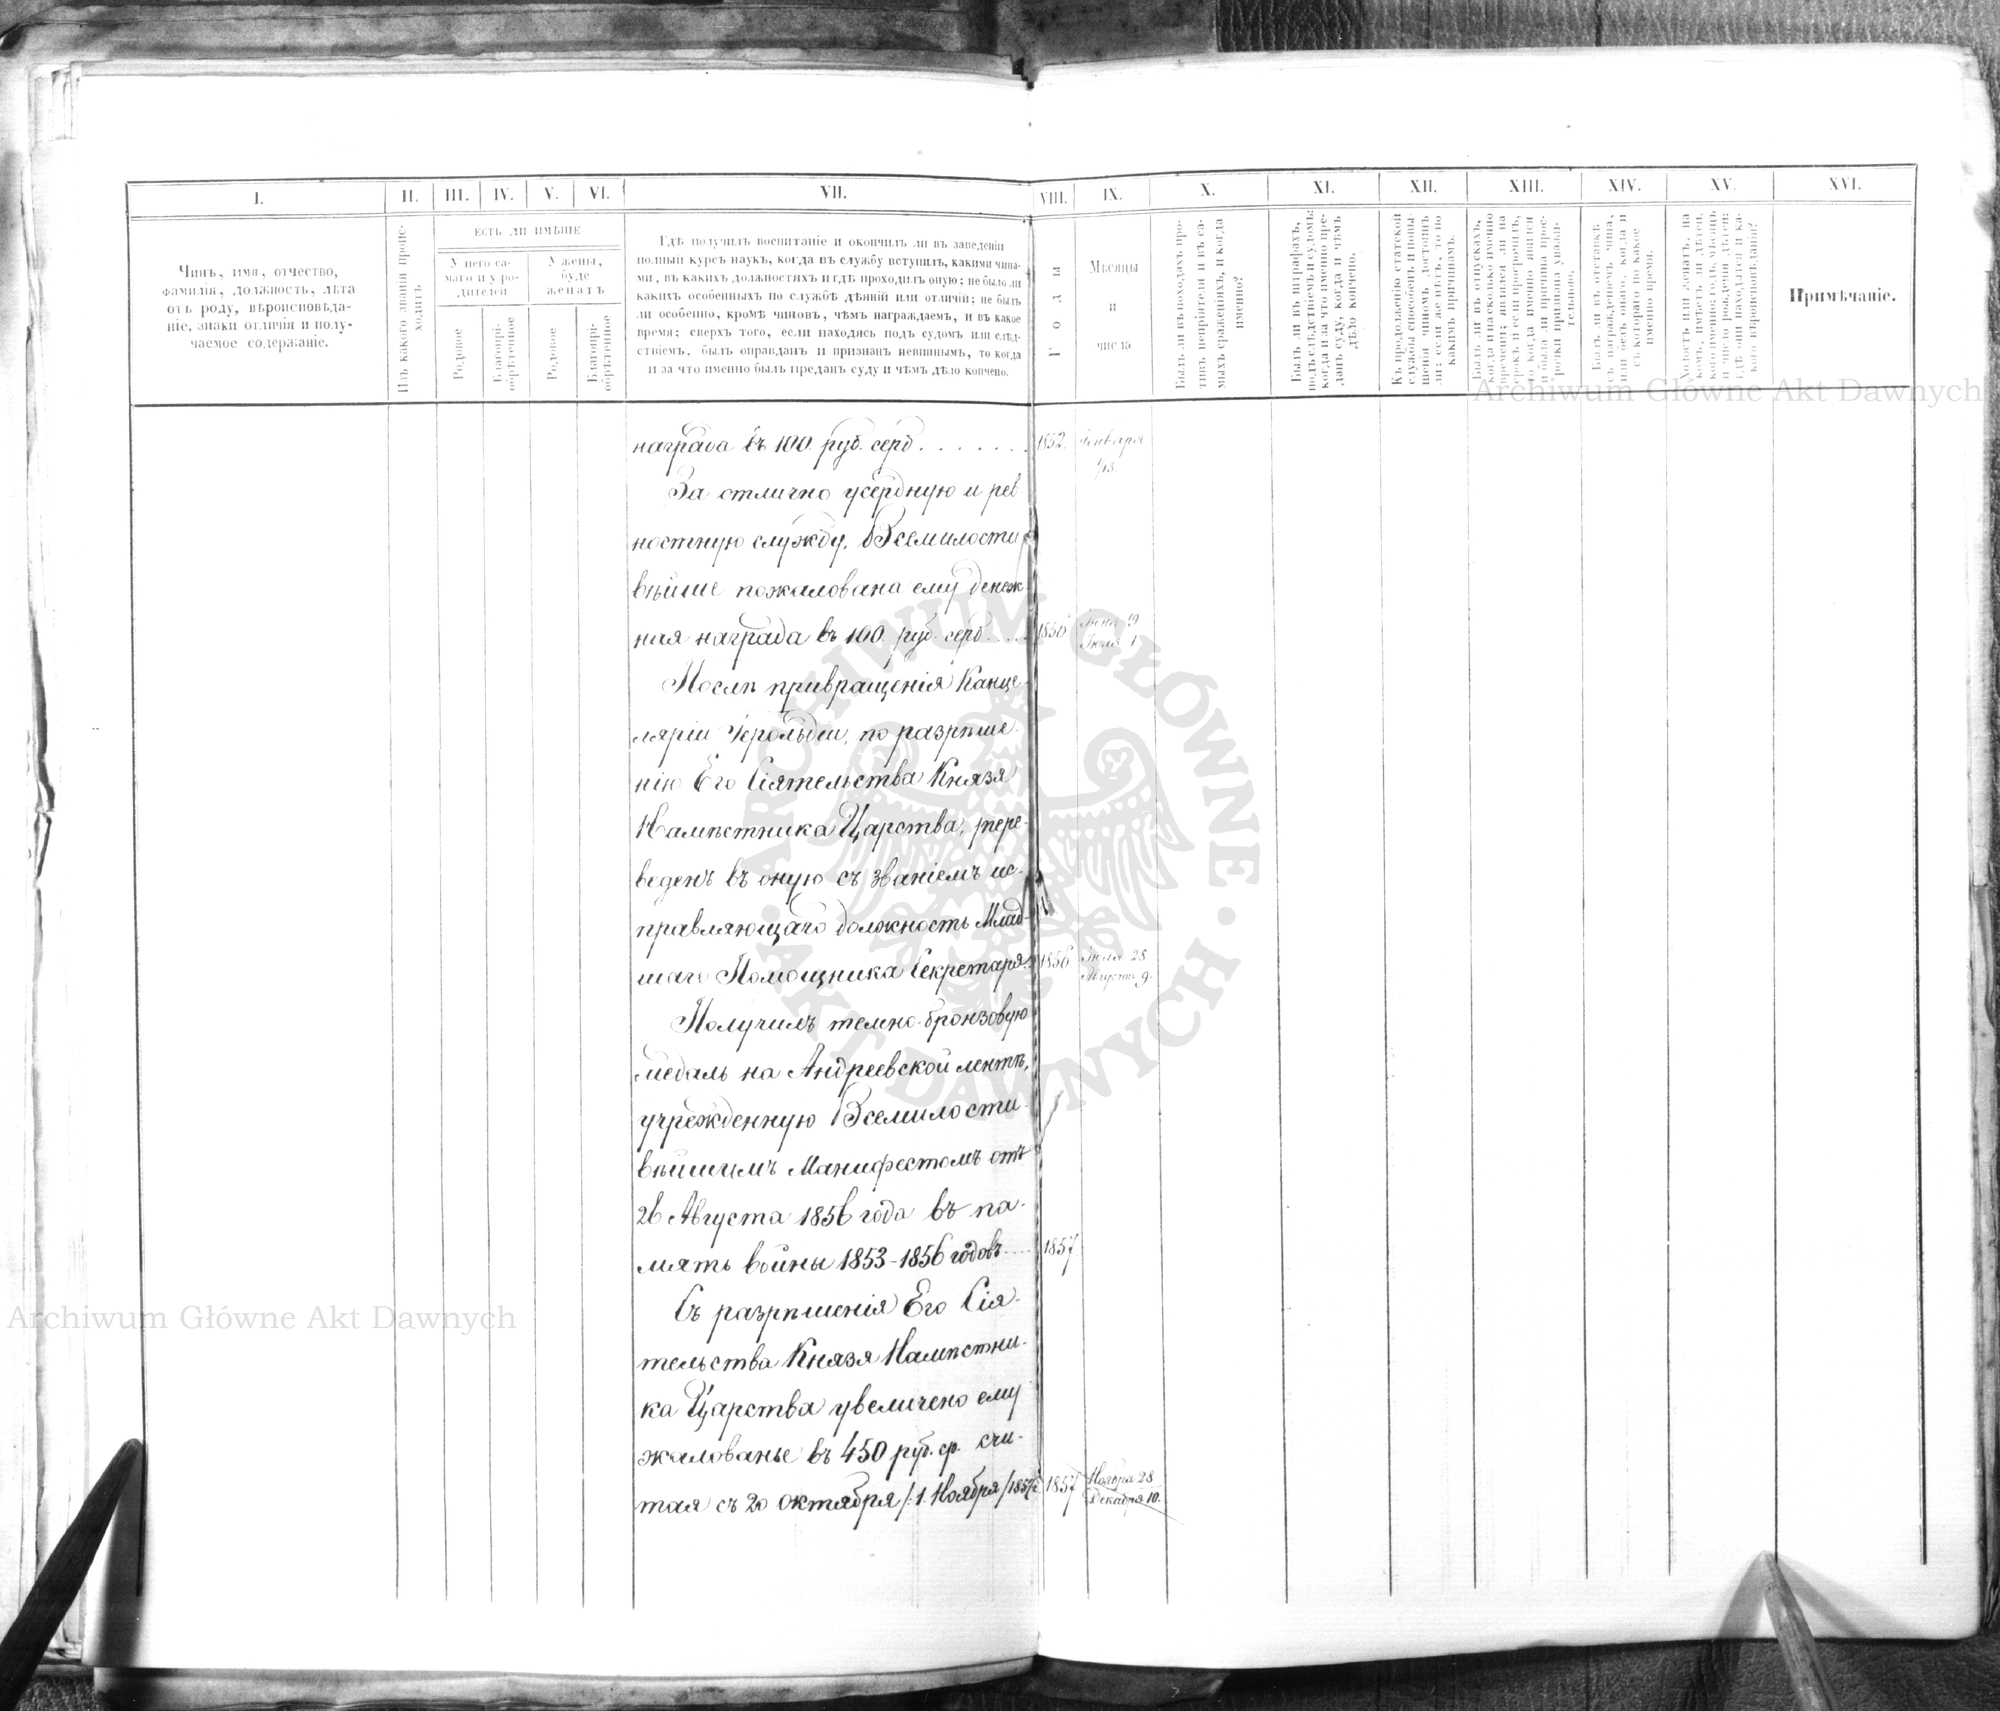 I. II. III. IV. V. VI. VII. VIII. IX. X. XI. XII. XIII. XIV. XV. XVI.
Чинъ, имя, отчество,
фамилія, должность, лѣта
отъ роду, вѣроисповѣда-
ніе, знаки отличія и полу-
чаемое содержаніе.
Изъ какого званія проис-
ходитъ
ЕСТЬ ЛИ ИМѢНІЕ
У него са-
маго и у ро-
дителей
У жены,
буде
женатъ
Родовое
Благопрі-
обрѣтенное
Родовое
Благопрі-
обрѣтенное
Гдѣ получилъ воспитаніе и окончилъ ли въ заведеніи
полный курсъ наукъ, когда въ службу вступилъ, какими чина-
ми, въ какихъ должностяхъ и гдѣ проходилъ оную; не было ли
какихъ особенныхъ по службѣ дѣяній или отличій; не былъ
ли особенно, кромѣ чиновъ, чѣмъ награждаемъ, и въ какое
время; сверхъ того, если находясь подъ судомъ или слѣд-
ствіемъ, былъ оправданъ и признанъ невиннымъ, то когда
и за что именно былъ преданъ суду и чѣмъ дѣло кончено.
Годы
Мѣсяцы
и
числа
Былъ ли въ походахъ про-
тивъ непріятеля и въ са-
мыхъ сраженіяхъ, и когда
именно?
Былъ ли въ штрафахъ,
подъ слѣдствіемъ и судомъ;
когда и за что именно пре-
данъ суду, когда и чѣмъ
дѣло кончено.
Къ продолженію статской
службы способенъ и повы-
шенія чиномъ достоинъ
ли; если же нѣтъ, то по
какимъ причинамъ.
Былъ ли въ отпускахъ,
когда и на сколько именно
времени; являлся ли на
срокъ и если просрочилъ,
то когда именно явился
и была ли причина прос-
рочки признана уважи-
тельною.
Былъ ли въ отставкѣ
съ награжденіемъ чина,
или безъ онаго, когда и
съ котораго по какое
именно время.
Холостъ или женатъ, на
комъ, имѣетъ ли дѣтей,
кого именно; годъ, мѣсяцъ
и число рожденія дѣтей;
гдѣ они находятся и ка-
кого вѣроисповѣданія?
Примѣчаніе.
награда въ 100 руб. сер. . . . . . . . 1852. Января
1/13.
За отлично усердную и рев
ностную службу, Всемилости
вѣйше пожалована ему денеж
ная награда въ 100. руб. сер. . . . . Іюня 19
Іюля 1
Послѣ привращенія Канце-
ляріи Герольдіи, по разрѣше-
нію Его Сіятельства Князя
Намѣстника Царства, пере-
веденъ въ оную съ званіемъ ис-
правляющаго должность Млад-
шаго Помощника Секретаря. 1856 Іюля 28
Августа 9.
Получилъ темно-бронзовую
медаль на Андреевской лентѣ,
учрежденную Всемилости-
вѣйшимъ Манифестомъ отъ
26 Августа 1856 года въ па-
мять войны 1853-1856 годовъ . . . . 1857
Съ разрѣшенія Его Сія-
тельства Князя Намѣстни-
ка Царства увеличено ему
жалованье въ 450 руб. ср. счи-
тая съ 20 Октября /: 1. Ноября / 1857 г. 1857 Ноября 28
Декабря 10.
Archiwum Główne Akt Dawnych
Archiwum Główne Akt Dawnych
ARCHIWUM GŁÓWNE H · AKT DAWNYCH ·